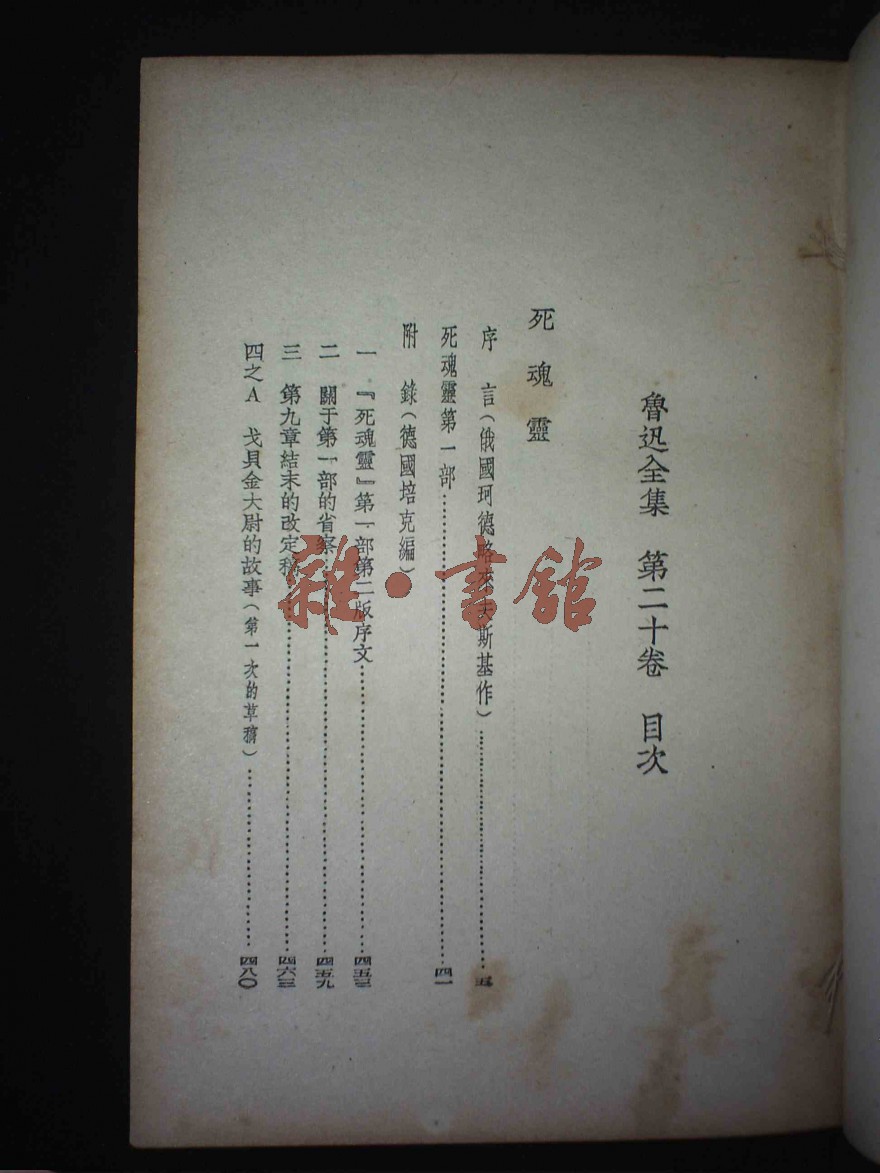 魯迅全集　第二十卷　目次
死魂靈
序　言（俄國珂德略來夫斯基作）……五
死魂靈第一部……四一
附　錄（德國培克編）
一　『死魂靈』第一部第二版序文……四五三
二　關于第一部的省察……四五九
三　第九章結末的改定稿……四六三
四之A　戈貝金大尉的故事（第一次的草稿）……四八〇
雜·書館